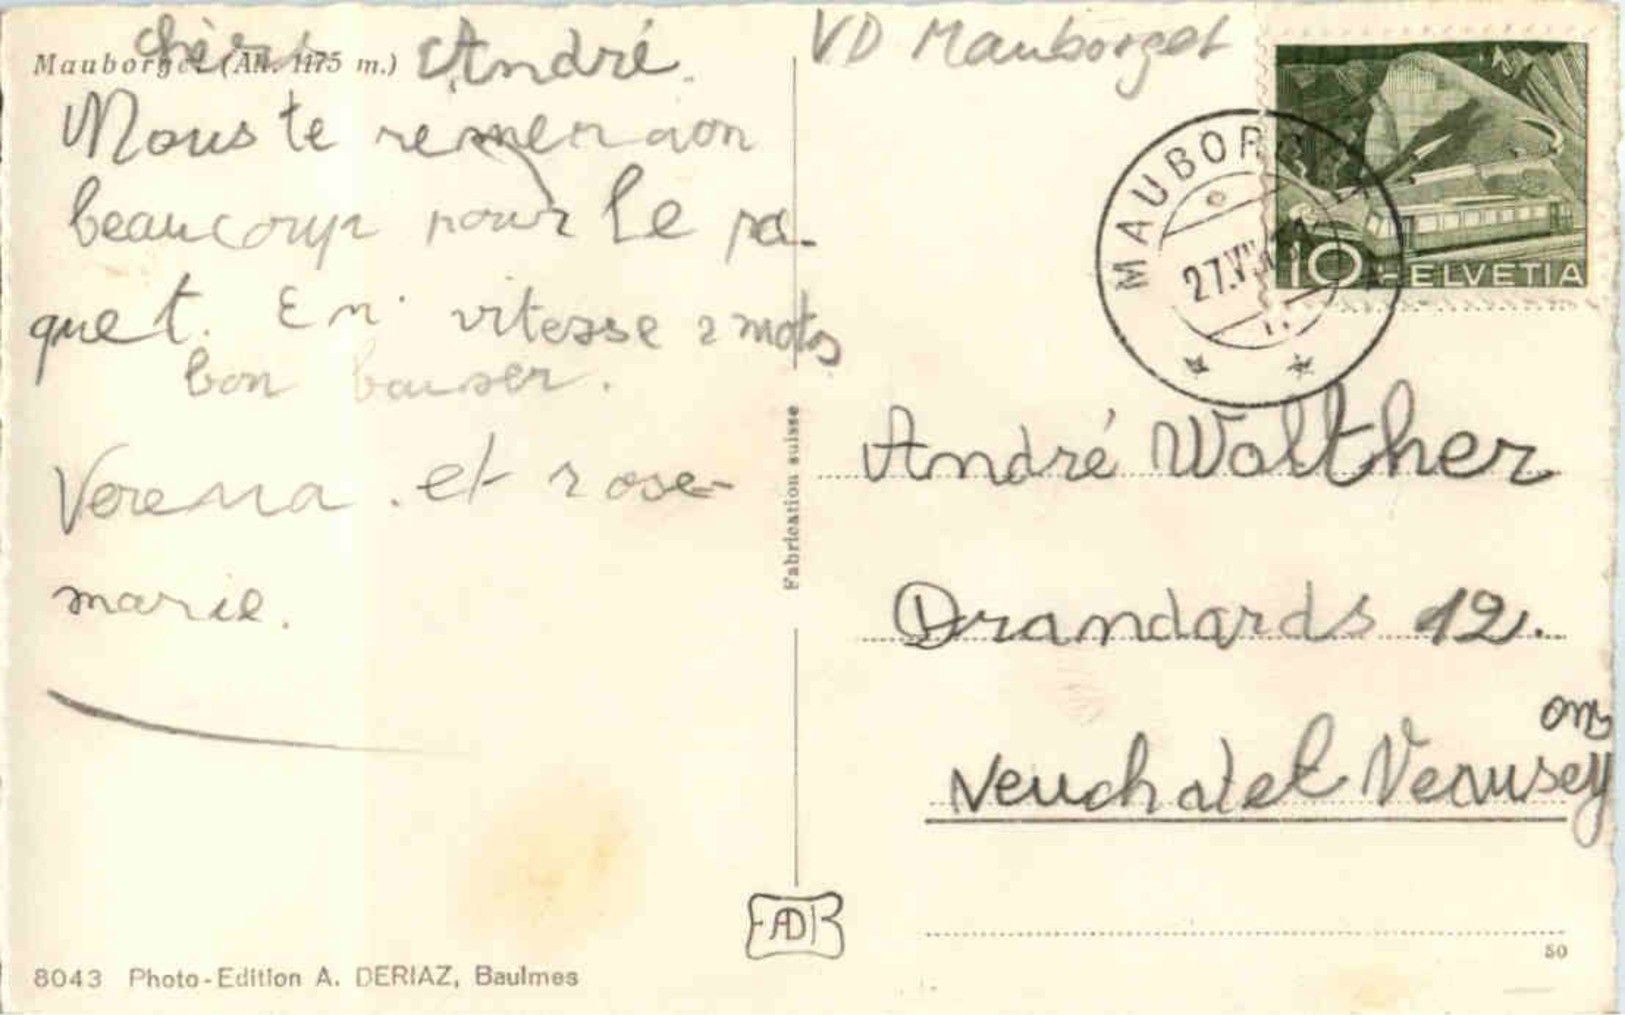 Mauborget (Alt. 1175 m.)
chèr André.
Nous te remercion
beaucoup pour le pa-
quet. En vitesse 2 mots
bon bauser.
Verena. et rose-
marie.
8043 Photo-Edition A. DERIAZ, Baulmes
Fabrication suisse
EADB
VD Mauborget
MAUBORGET
27.VII
10 HELVETIA
André Walther
Drandards 12.
on
Neuchatel Vausey
50